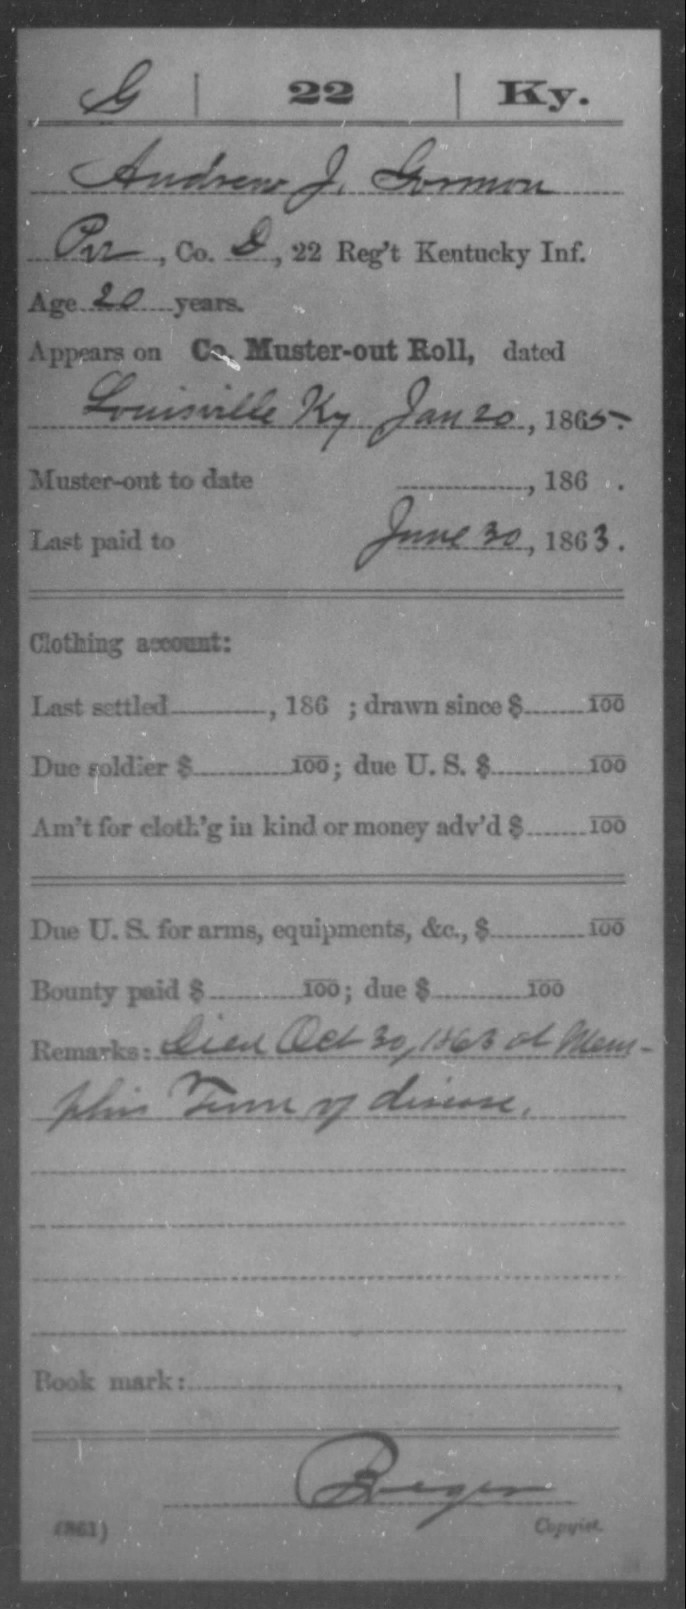 G | 22 | Ky.
Andrew J. Gormon
Pvt, Co. D, 22 Reg't Kentucky Inf.
Age 20 years.
Appears on Co. Muster-out Roll, dated
Louisville Ky Jan 20, 1865.
Muster-out to date , 186 .
Last paid to June 30, 1863.
Clothing account:
Last settled , 186 ; drawn since $ 100
Due soldier $ 100; due U. S. $ 100
Am't for cloth'g in kind or money adv'd $ 100
Due U. S. for arms, equipments, &c., $ 100
Bounty paid $ 100; due $ 100
Remarks: Died Oct 30, 1863 at Mem-
phis Tenn of disease.
Book mark:
(861) Copyist.